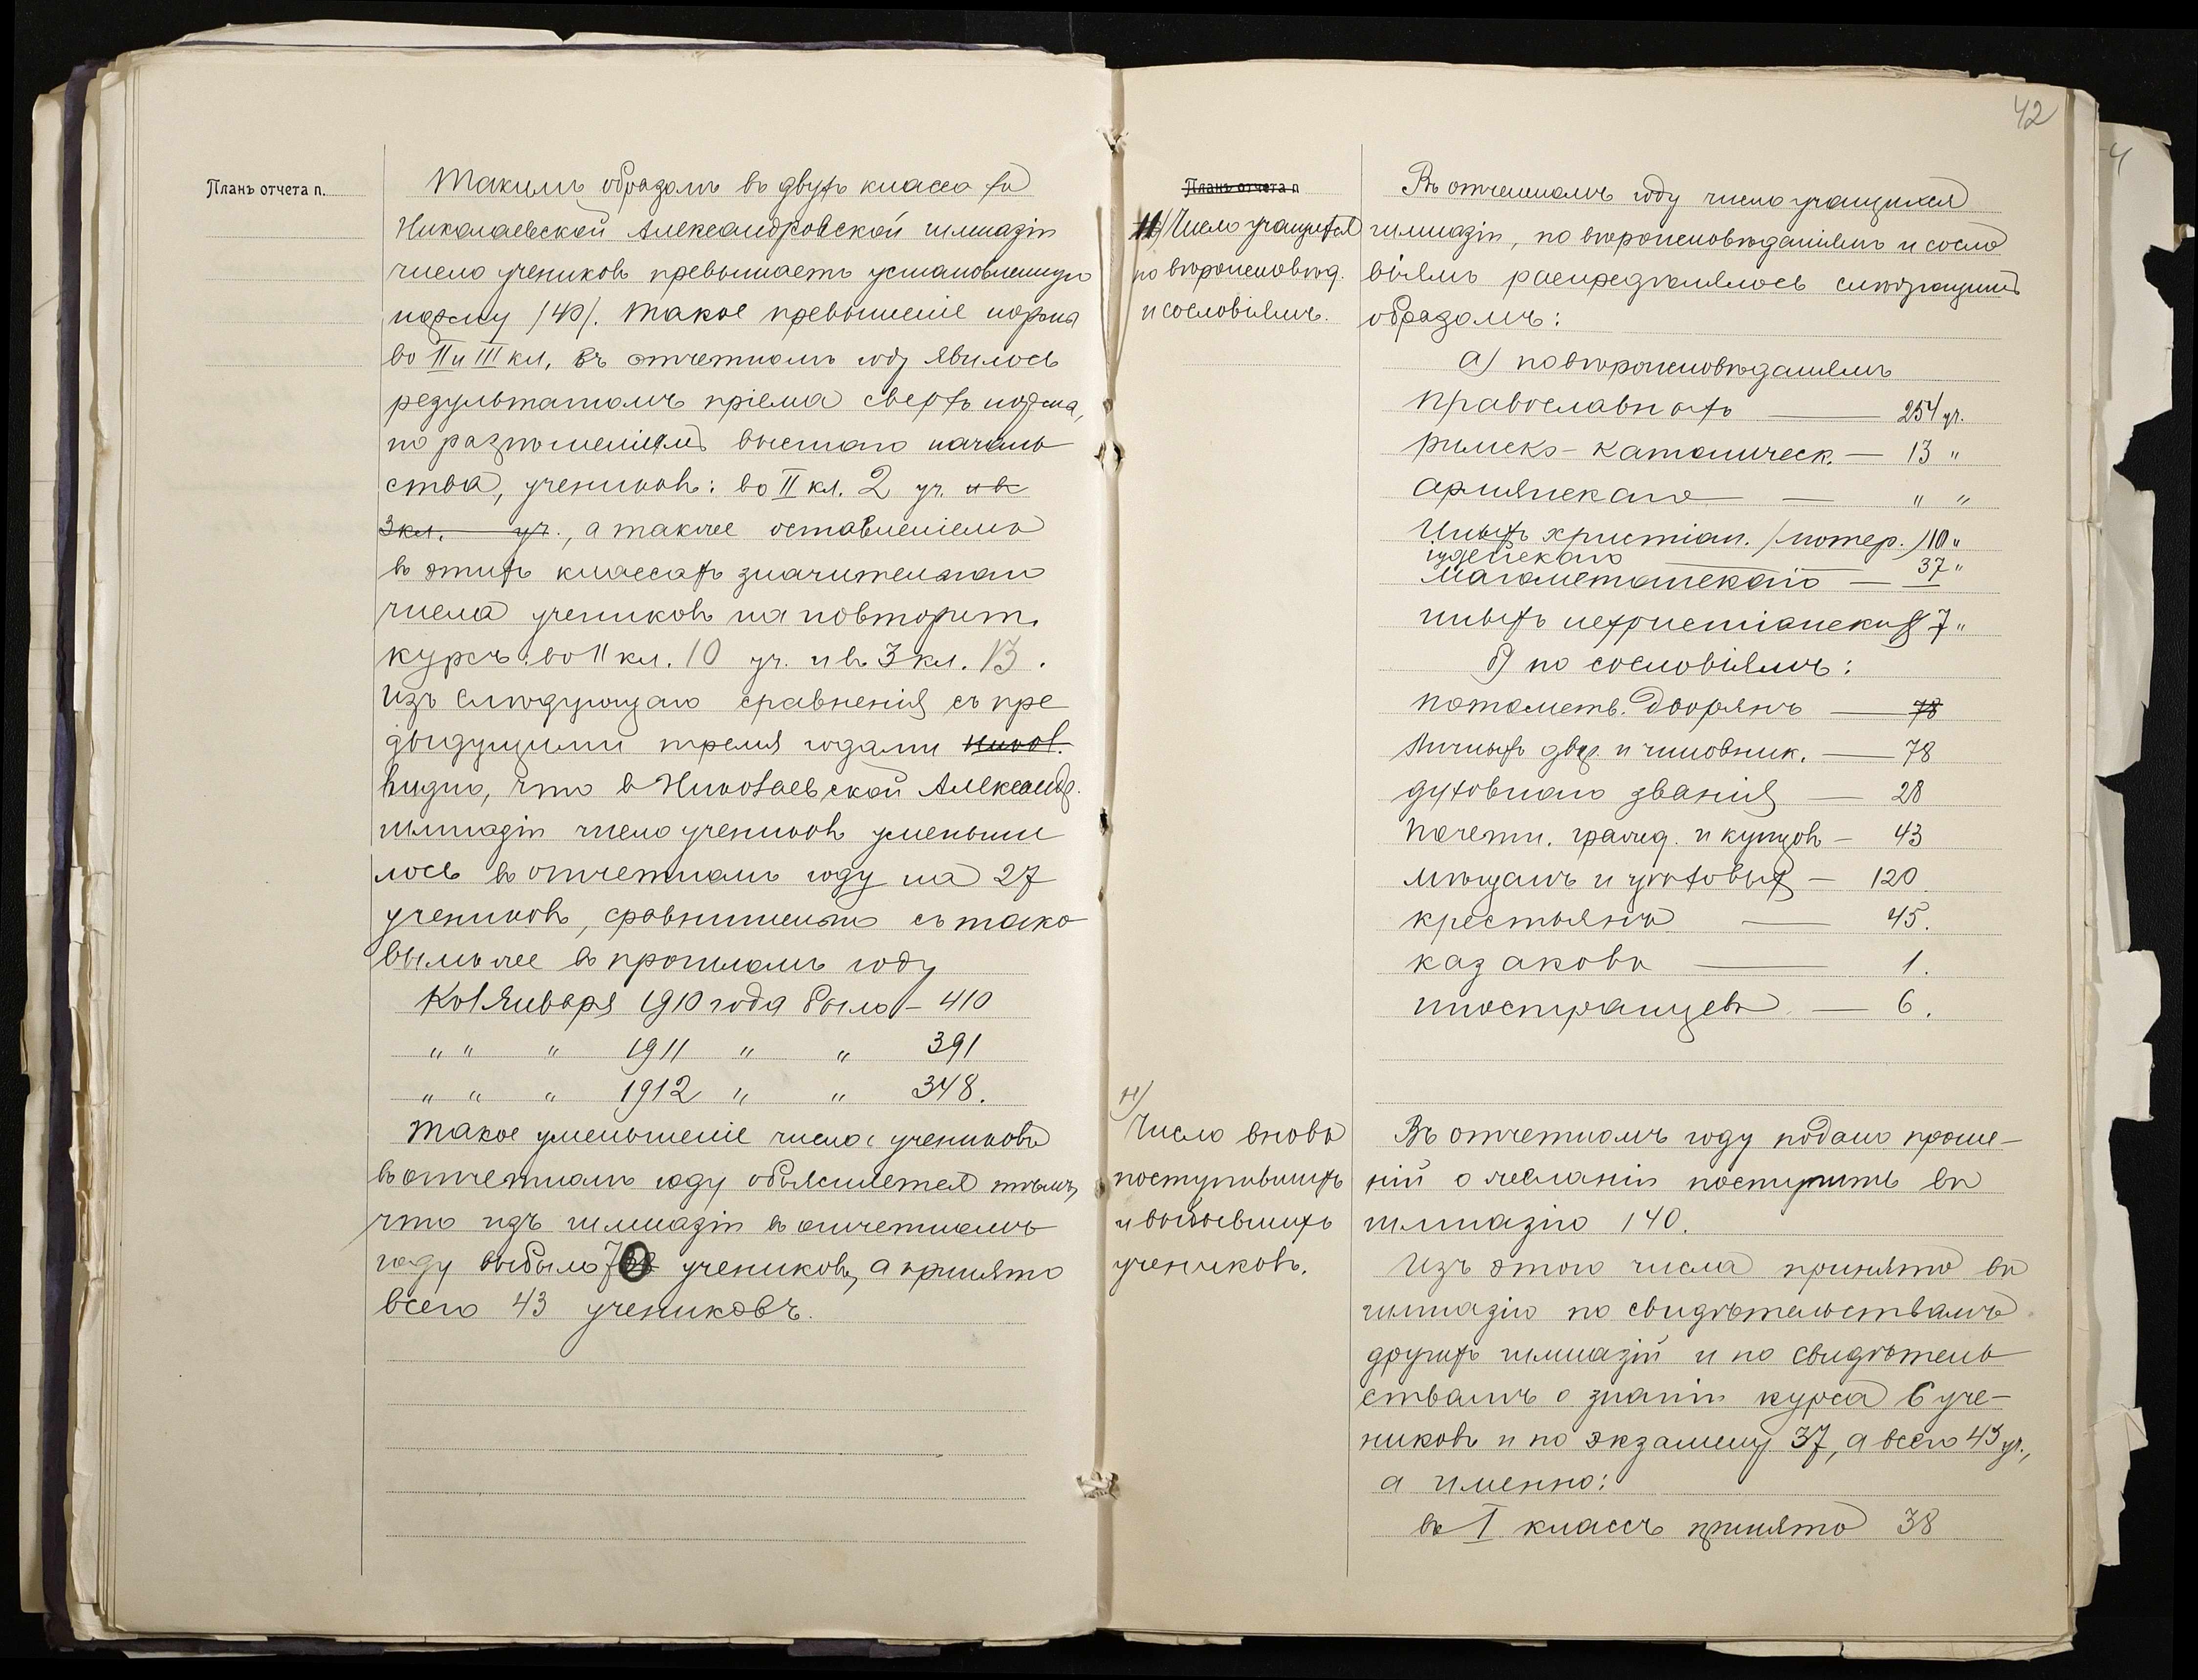 Планъ отчета п.
Такимъ образомъ въ двухъ класса хъ
Николаевской Александровской гимназіи
число учениковъ превышаетъ установленную
норму (40). Такое превышеніе нормы
во II и III кл. въ отчетномъ году явилось
результатомъ пріема сверхъ нормы,
по разрѣшеніямъ высшаго началь
ства, учениковъ: во II кл. 2 уч. и въ
3 кл. уч., а также оставленіемъ
въ этихъ классахъ значительнаго
числа учениковъ на повторит.
курсъ: во II кл. 10 уч. и въ 3 кл. 13.
Изъ слѣдующаго сравненія съ пре
дыдущими тремя годами
видно, что въ Николаевской Александр.
гимназіи число учениковъ уменьши
лось въ отчетномъ году на 27
учениковъ, сравнительно съ тако
вымъ же въ прошломъ году
Къ 1 Января 1910 года было – 410
" " " 1911 " " 391
" " " 1912 " " 348.
Такое уменьшеніе числа учениковъ
въ отчетномъ году объясняется тѣмъ,
что изъ гимназіи въ отчетномъ
году выбыло 70 учениковъ, а принято
всего 43 учениковъ.
42
Планъ отчета п
11) Число учащихся
по вѣроисповѣд.
и сословіямъ.
Въ отчетномъ году число учащихся
гимназіи, по вѣроисповѣданіямъ и сосло
віямъ распредѣлялось слѣдующимъ
образомъ:
а) по вѣроисповѣданіямъ
православныхъ — 254 уч.
римско-католическ. — 13 "
армянскаго — " "
Иныхъ христіан. (лютер.) 10 "
іудейскаго — 37 "
магометанскаго —
иныхъ нехристіанскихъ 7 "
б) по сословіямъ:
потомств. дворянъ — 78
Личныхъ двор. и чиновник. — 78
духовнаго званія — 28
Почетн. гражд. и купцовъ – 43
мѣщанъ и цеховыхъ – 120
крестьянъ — 45.
казаковъ — 1.
иностранцевъ — 6.
11)
Число вновь
поступившихъ
и выбывшихъ
учениковъ.
Въ отчетномъ году подано проше–
ній о желаніи поступить въ
гимназію 140.
Изъ этого числа принято въ
гимназію по свидѣтельствамъ
другихъ гимназій и по свидѣтель
ствамъ о знаніи курса 6 уче–
никовъ и по экзамену 37, а всего 43 уч.,
а именно:
въ I классъ принято 38